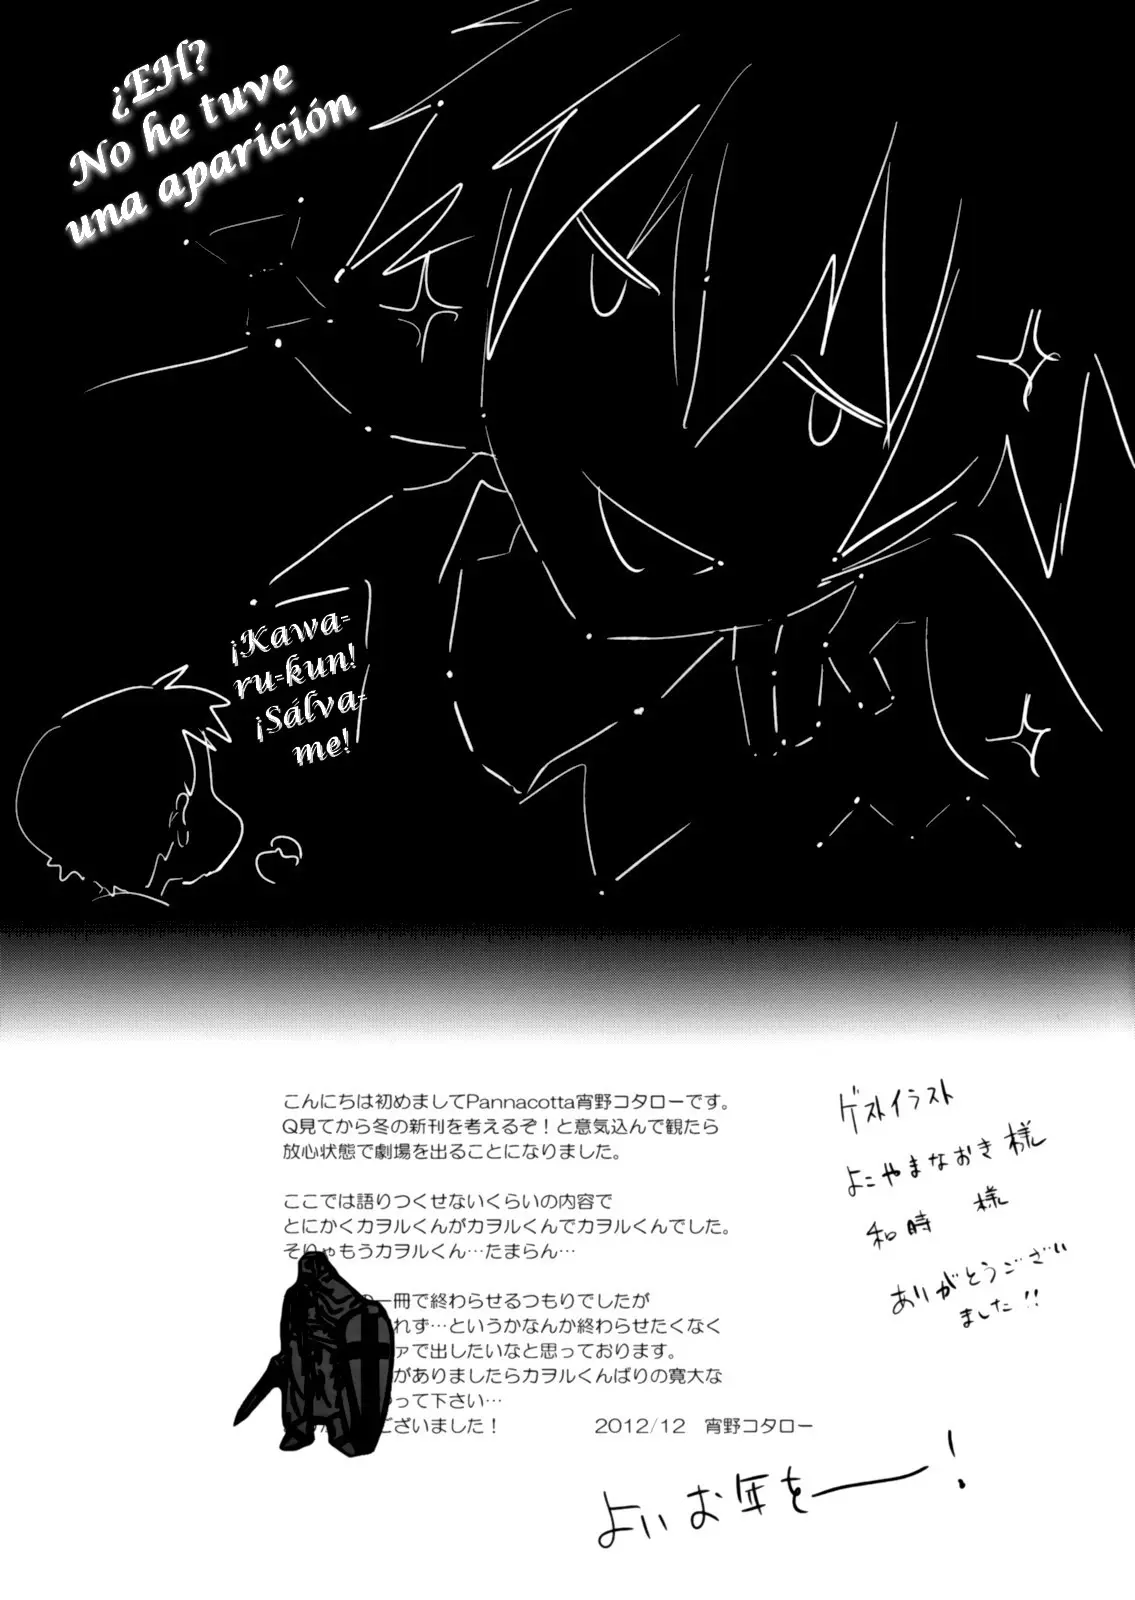 ¿EH?
No he tuve
una aparición
¡Kawa-
ru-kun!
¡Sálva-
me!
こんにちは初めましてPannacotta宵野コタローです。
Q見てから冬の新刊を考えるぞ！と意気込んで観たら
放心状態で劇場を出ることになりました。
ここでは語りつくせないくらいの内容で
とにかくカヲルくんがカヲルくんでカヲルくんでした。
そりゃもうカヲルくん…たまらん…
一冊で終わらせるつもりでしたが
れず…というかなんか終わらせたくなく
ァで出したいなと思っております。
がありましたらカヲルくんばりの寛大な
って下さい…
ございました！
2012/12 宵野コタロー
ゲストイラスト
よこやまなおき様
和時 様
ありがとうござい
ました!!
よいお年をー!